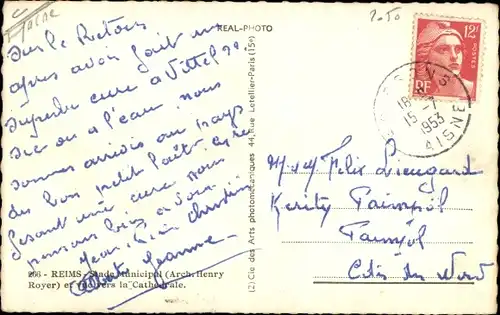 REAL-PHOTO
Sur le Retour
après avoir fait un
cure a Vittel
a l'eau, nous
sommes arrivés au pays
du bon petit
Faisant une cure nous
pensons bien à vous
Jean Christian
Albert Jeanne
266 - REIMS - Stade Municipal (Arch. Henry
Royer) et vue vers la Cathédrale.
(2) Cie des Arts photomécaniques 44, Rue Letellier-Paris (15e)
12F
POSTES
RF
18
15 -
1953
AISNE
M et M Felix
Kerity Paimpol
Paimpol
Côtes du Nord